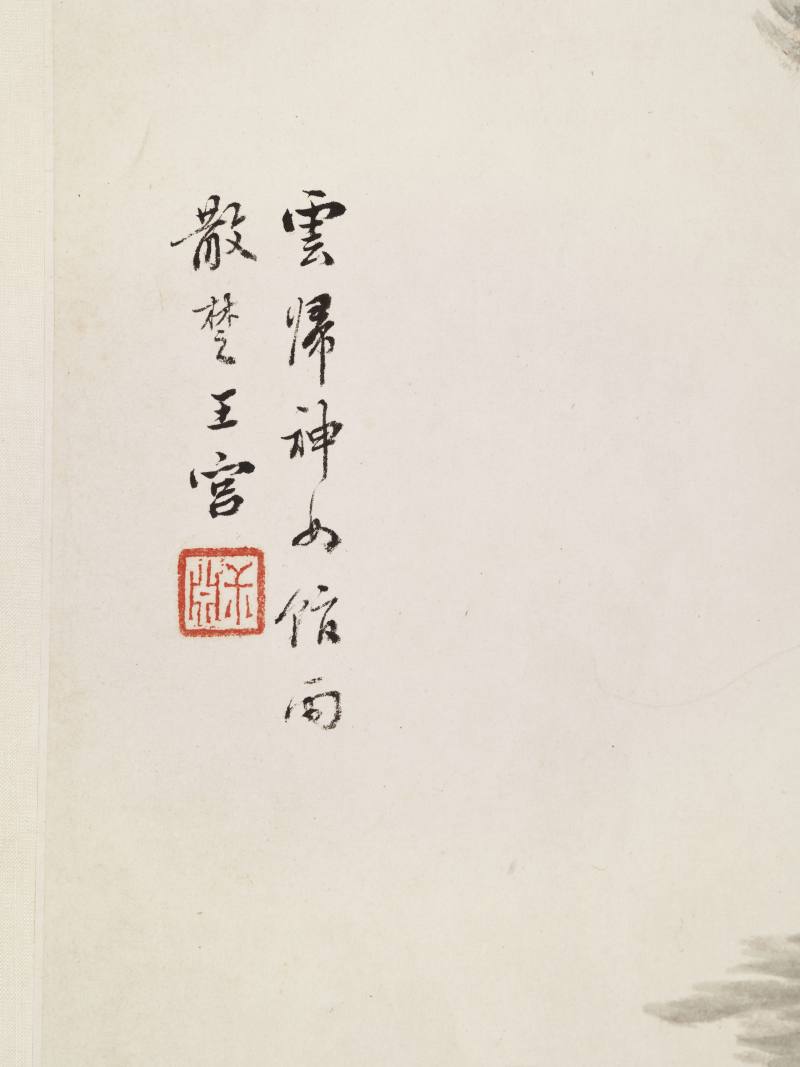 雲歸神女館雨
散楚王宮